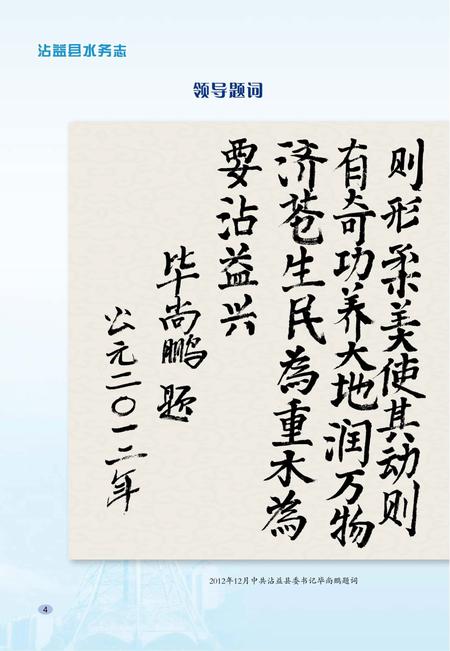 沾益县水务志
领导题词
则形柔美使其动则
有奇功养大地润万物
济苍生民為重水為
要沾益兴
毕尚鹏题
公元二〇一二年
2012年12月中共沾益县委书记毕尚鹏题词
4